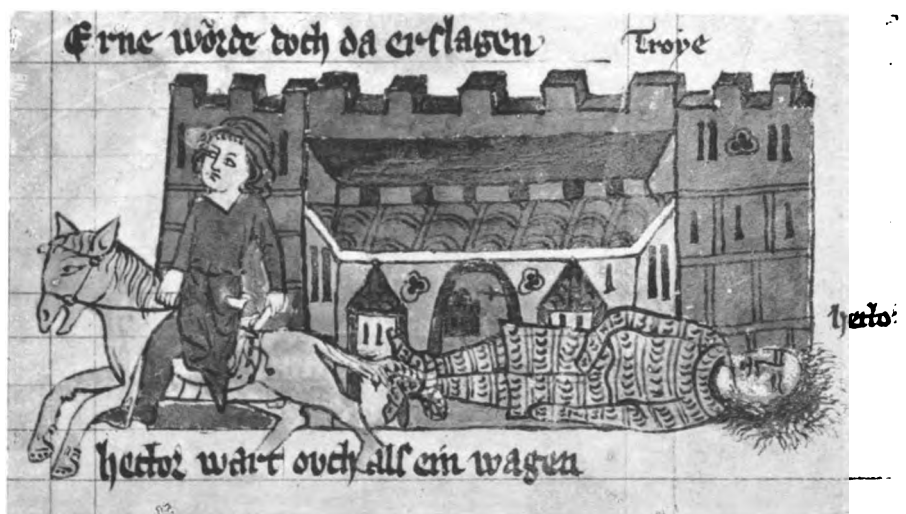 Erne wőrde doch da erslagen
Troye
hector
hector wart ovch als ein wagen